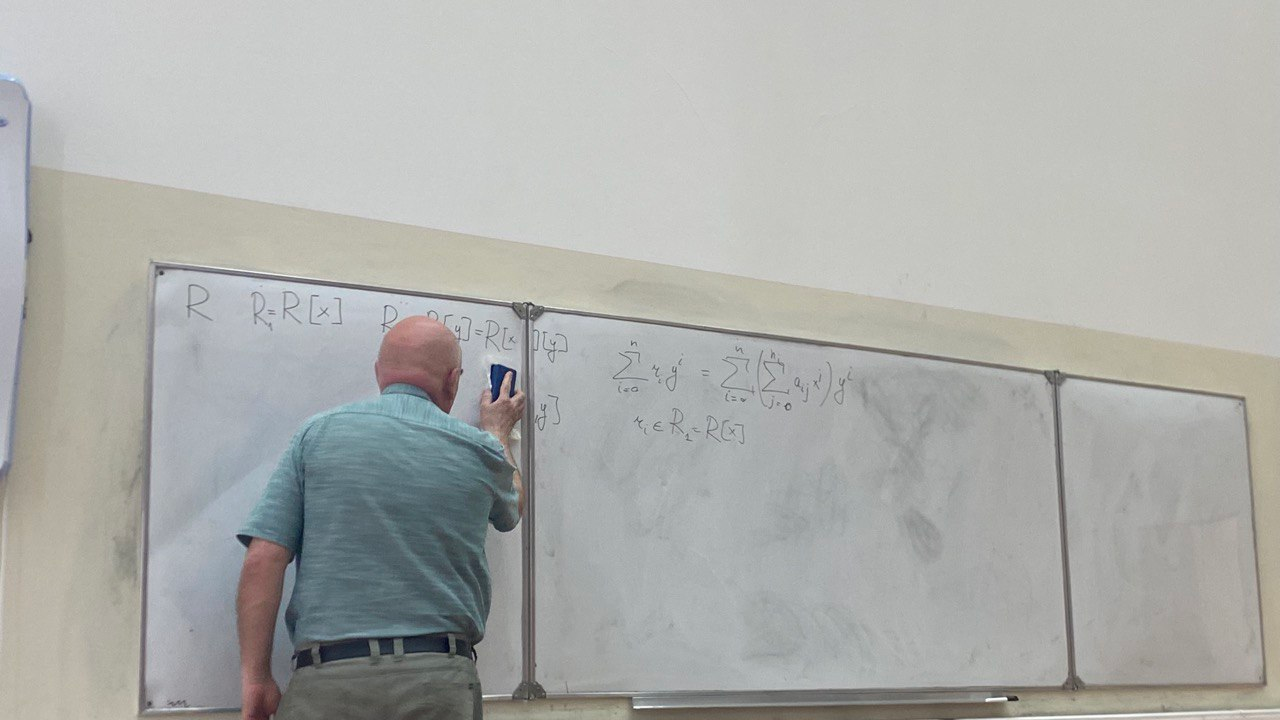 R R₁=R[x] R [y]=R[x][y]
,y]
\sum_{i=0}^{n} r_i y^i = \sum_{i=0}^{n} \left( \sum_{j=0}^{n_i} a_{ij} x^j \right) y^i
r_i ∈ R₁=R[x]